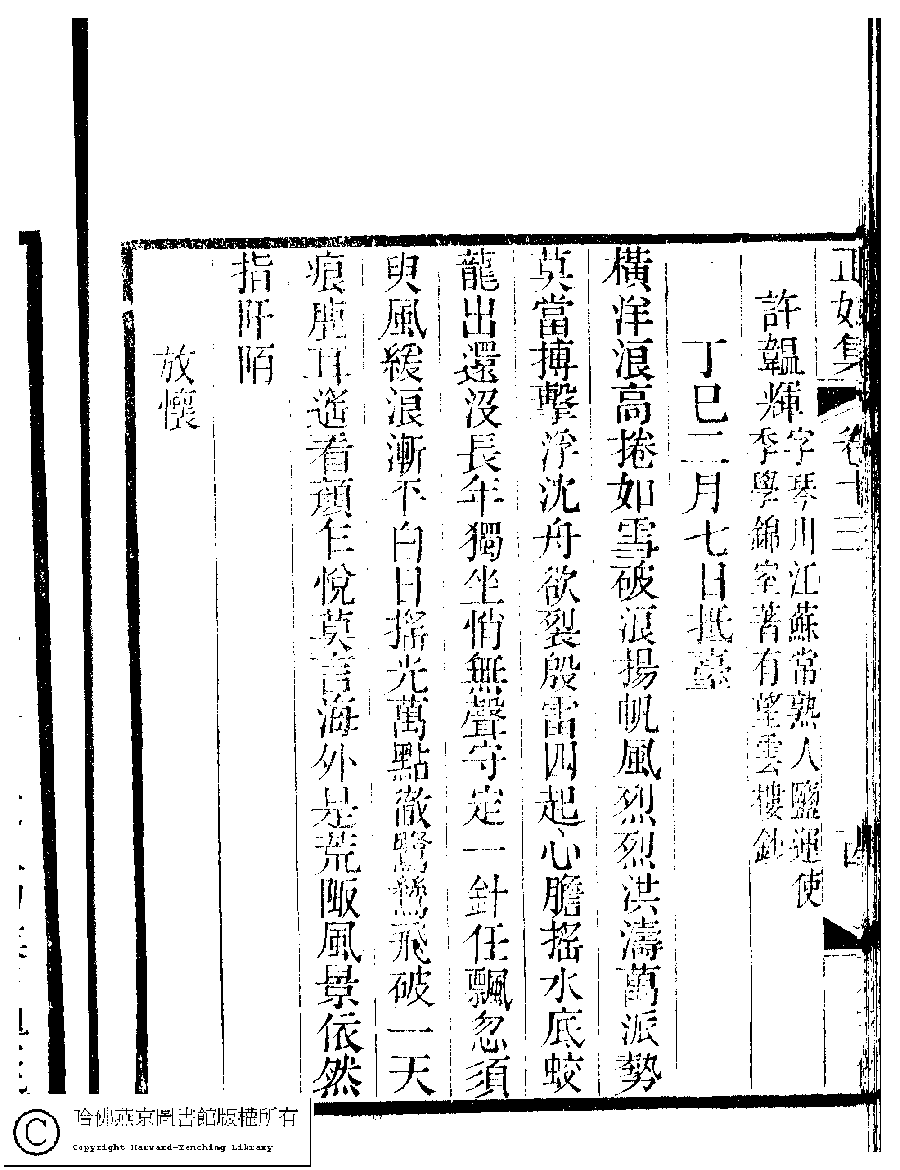 正始集 卷十三 四
許韞輝字琴川江蘇常熟人鹽運使
李學錦室著有望雲樓鈔
丁巳二月七日抵臺
橫洋浪高捲如雪破浪揚帆風烈烈洪濤萬派勢
莫當搏擊浮沈舟欲裂殷雷四起心膽搖水底蛟
龍出還沒長年獨坐悄無聲守定一針任飄忽須
臾風緩浪漸平白日搖光萬點徹鷺鷥飛破一天
痕鹿耳遙看顏乍悅莫言海外是荒陬風景依然
指阡陌
放懷
哈佛燕京圖書館版權所有
Copyright Harvard-Yenching Library